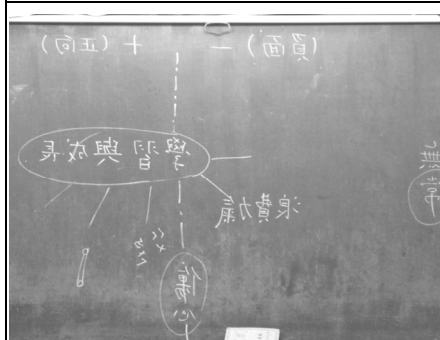 (負面) － ＋ (正向)
學習與成長
浪費力氣
傷心
常